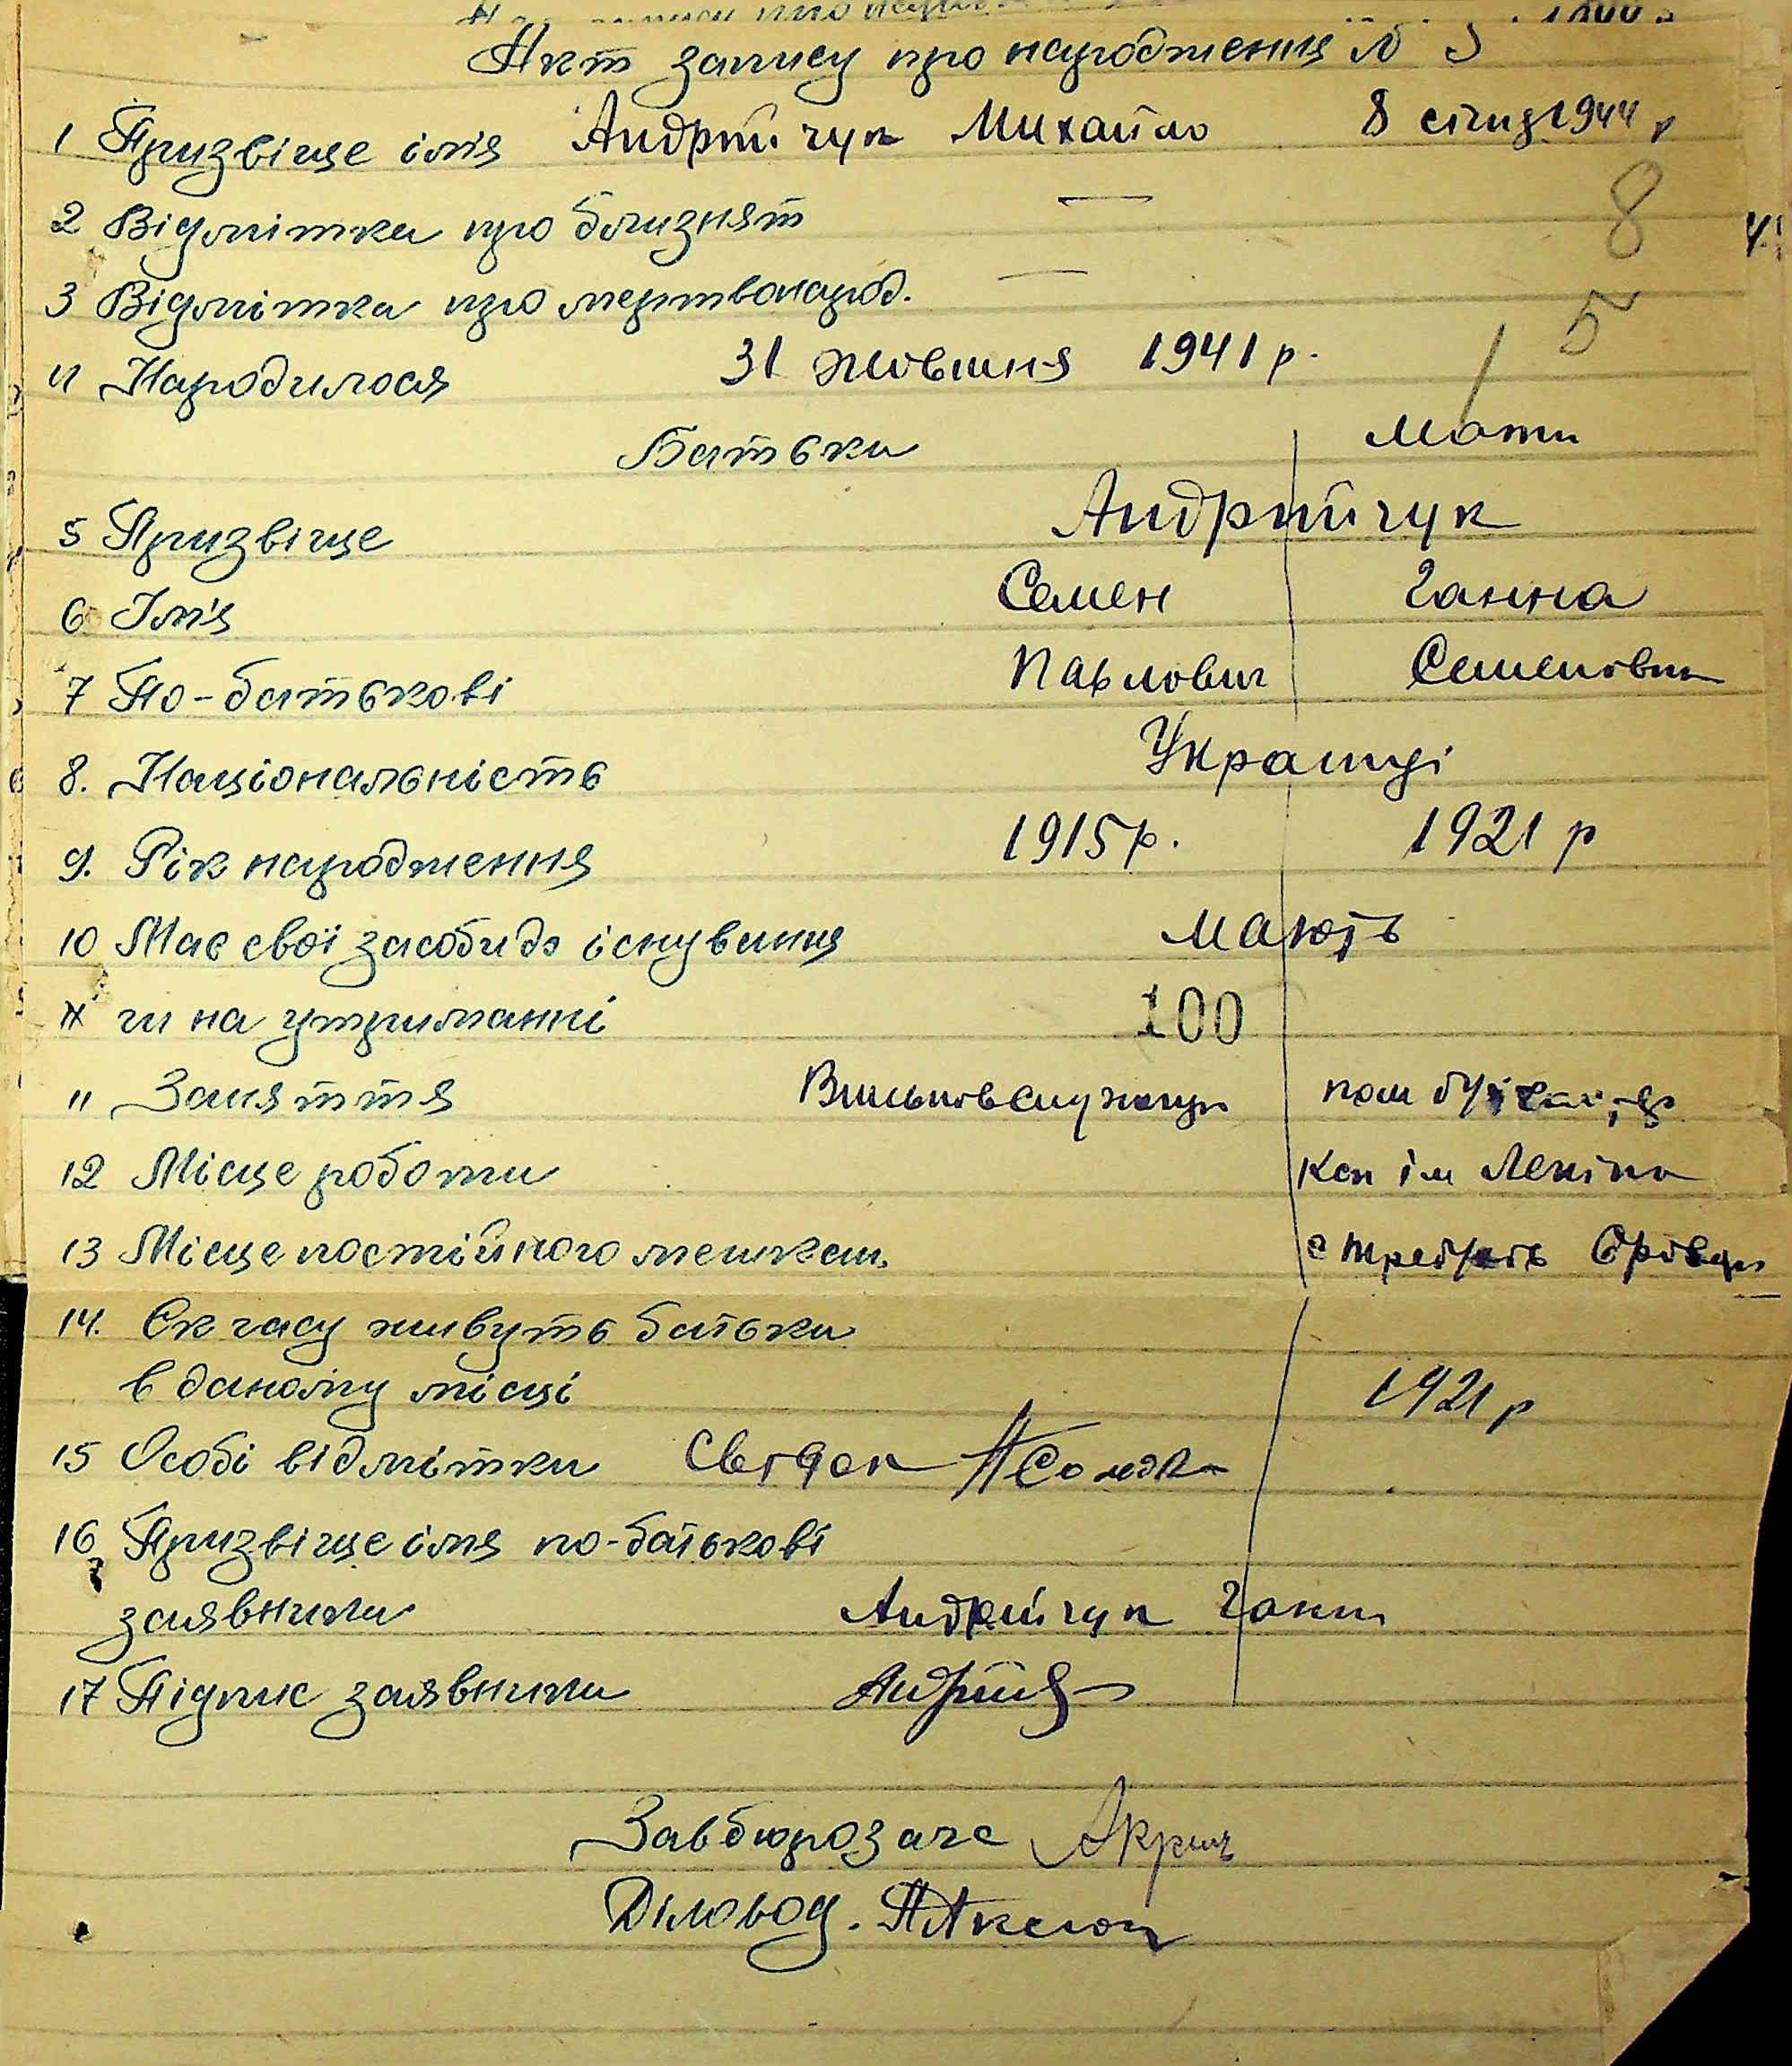 Акт запису про народження № 5
1 Призвіще імя Андрійчук Михайло 8 січня 1944 р
2 Відмітка про близнят — 8
3 Відмітка про мертвонарод. — 5
4 Народилося 31 жовтня 1941 р.
Батьки Мати
5 Призвіще Андрійчук
6 Імя Семен Ганна
7 По-батькові Павлович Семеновна
8. Національність Українці
9. Рік народження 1915 р. 1921 р
10 Має свої засоби до існування мають
чи на утриманні 100
11 Заняття Військовслужащ
12 Місце роботи Кол ім Леніна
13 Місце постійного мешкан.
14. Як часу живуть батьки
в даному місці 1921 р
15 Особі відмітки Свідок
16 Призвіще імя по-батькові
заявника Андрійчук Ганна
17 Підпис заявника
Завбюрозагс
Діловод.